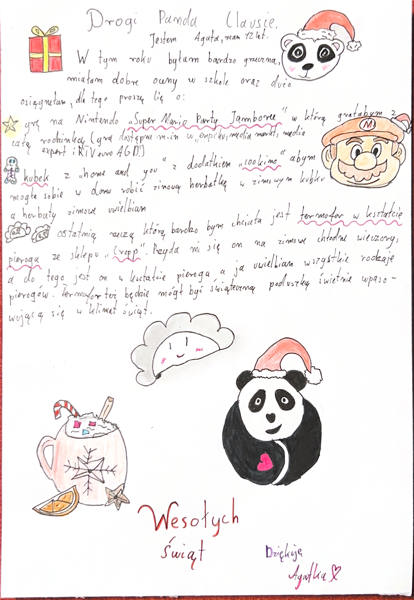 Drogi Panda Clausie,
Jestem Agata, mam 12 lat.
W tym roku byłam bardzo grzeczna,
miałam dobre oceny w szkole oraz dużo
osiągnęłam, dlatego proszę Cię o:
grę na Nintendo „Super Mario Party Jamboree" w którą grałabym z
całą rodzinką (gra dostępna m.in w empiku, media markt, media
expert i RTV euro AGD)
kubek z „home and you" z dodatkiem „cookino" abym
mogła sobie w domu robić zimową herbatkę w zimowym kubku
a herbaty zimowe uwielbiam
ostatnią rzeczą którą bardzo bym chciała jest termofor w kształcie
pieroga ze sklepu „Cropp". Przyda mi się on na zimowe chłodne wieczory,
a do tego jest on w kształcie pieroga a ja uwielbiam wszystkie rodzaje
pierogów. Termofor też będzie mógł być świąteczną poduszką świetnie wpaso-
wującą się w klimat świąt.
Wesołych
Świąt
Dziękuję
Agatka